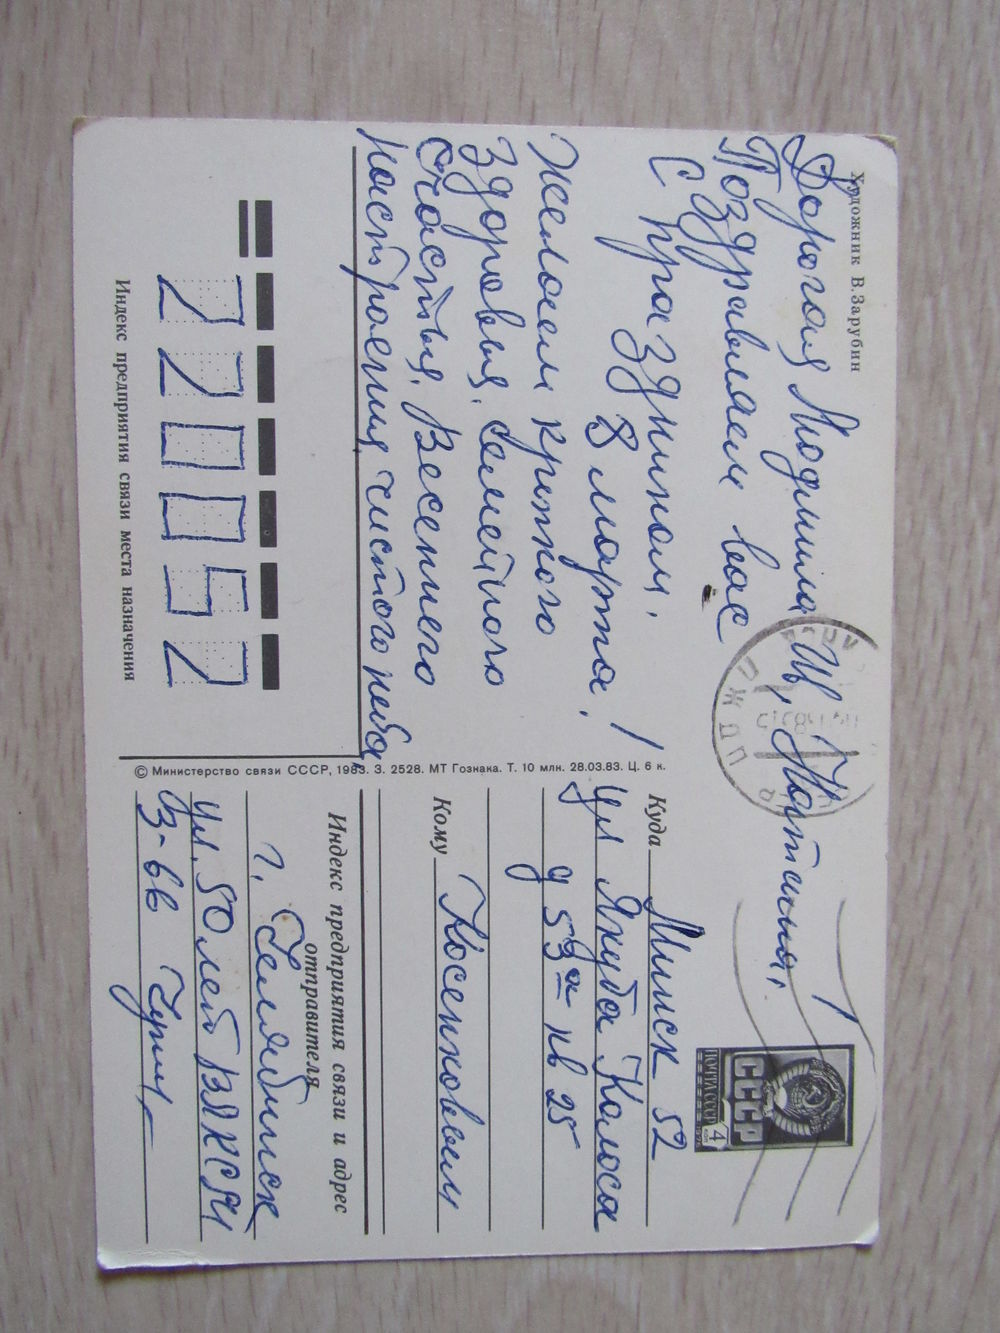 Художник В. Зарубин
Дорогая Людмила
Поздравляем вас
С праздником,
8 марта!
Желаем крепкого
Здоровья, семейного
счастья, Весеннего
настроения, чистого неба,
Индекс предприятия связи места назначения
220052
© Министерство связи СССР, 1983. З. 2528. МТ Гознака. Т. 10 млн. 28.03.83. Ц. 6 к.
ПОЧТА СССР
СССР
4
КОП
Куда Минск 52
ул Якуба Коласа
д 53а кв 25
Кому Косенковым
Индекс предприятия связи и адрес
отправителя
г. Челябинск
ул. 50 лет ВЛКСМ